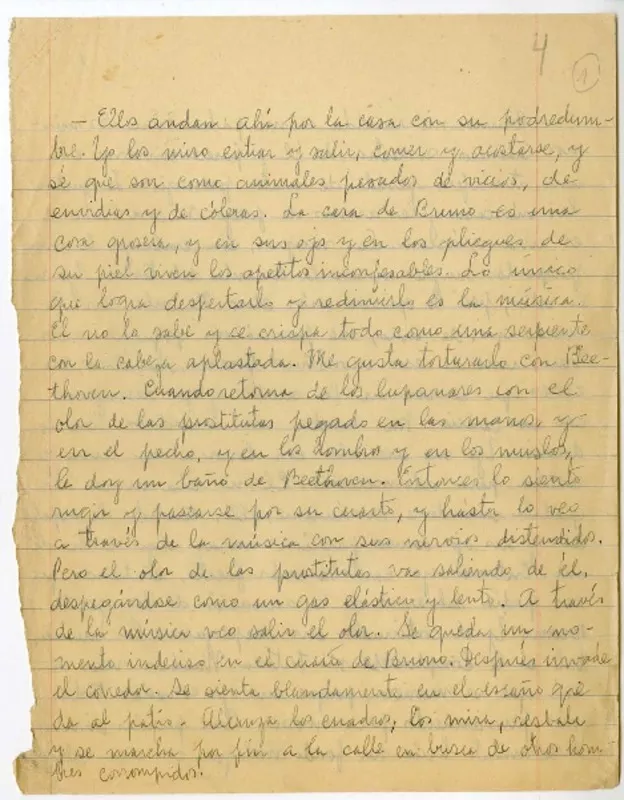 4
1
— Ellos andan ahí por la casa con su podredum-
bre. Yo los miro entrar y salir, comer y acostarse, y
sé que son como animales pesados de vicios, de
envidias y de cóleras. La cara de Bruno es una
cosa grosera, y en sus ojos y en los pliegues de
su piel viven los apetitos inconfesables. Lo único
que logra despertarlo y redimirlo es la música.
El no lo sabe y se crispa todo como una serpiente
con la cabeza aplastada. Me gusta torturarlo con Bee-
thoven. Cuando retorna de los lupanares con el
olor de las prostitutas pegado en las manos y
en el pecho, y en los hombros y en los muslos,
le doy un baño de Beethoven. Entonces lo siento
rugir y pasearse por su cuarto, y hasta lo veo
a través de la música con sus nervios distendidos.
Pero el olor de las prostitutas va saliendo de él,
despegándose como un gas elástico y lento. A través
de la música veo salir el olor. Se queda un mo-
mento indeciso en el cuarto de Bruno. Después invade
el corredor. Se sienta blandamente en el escaño que
da al patio. Alcanza los cuadros, los mira, resbala
y se marcha por fin a la calle en busca de otros hom-
bres corrompidos.